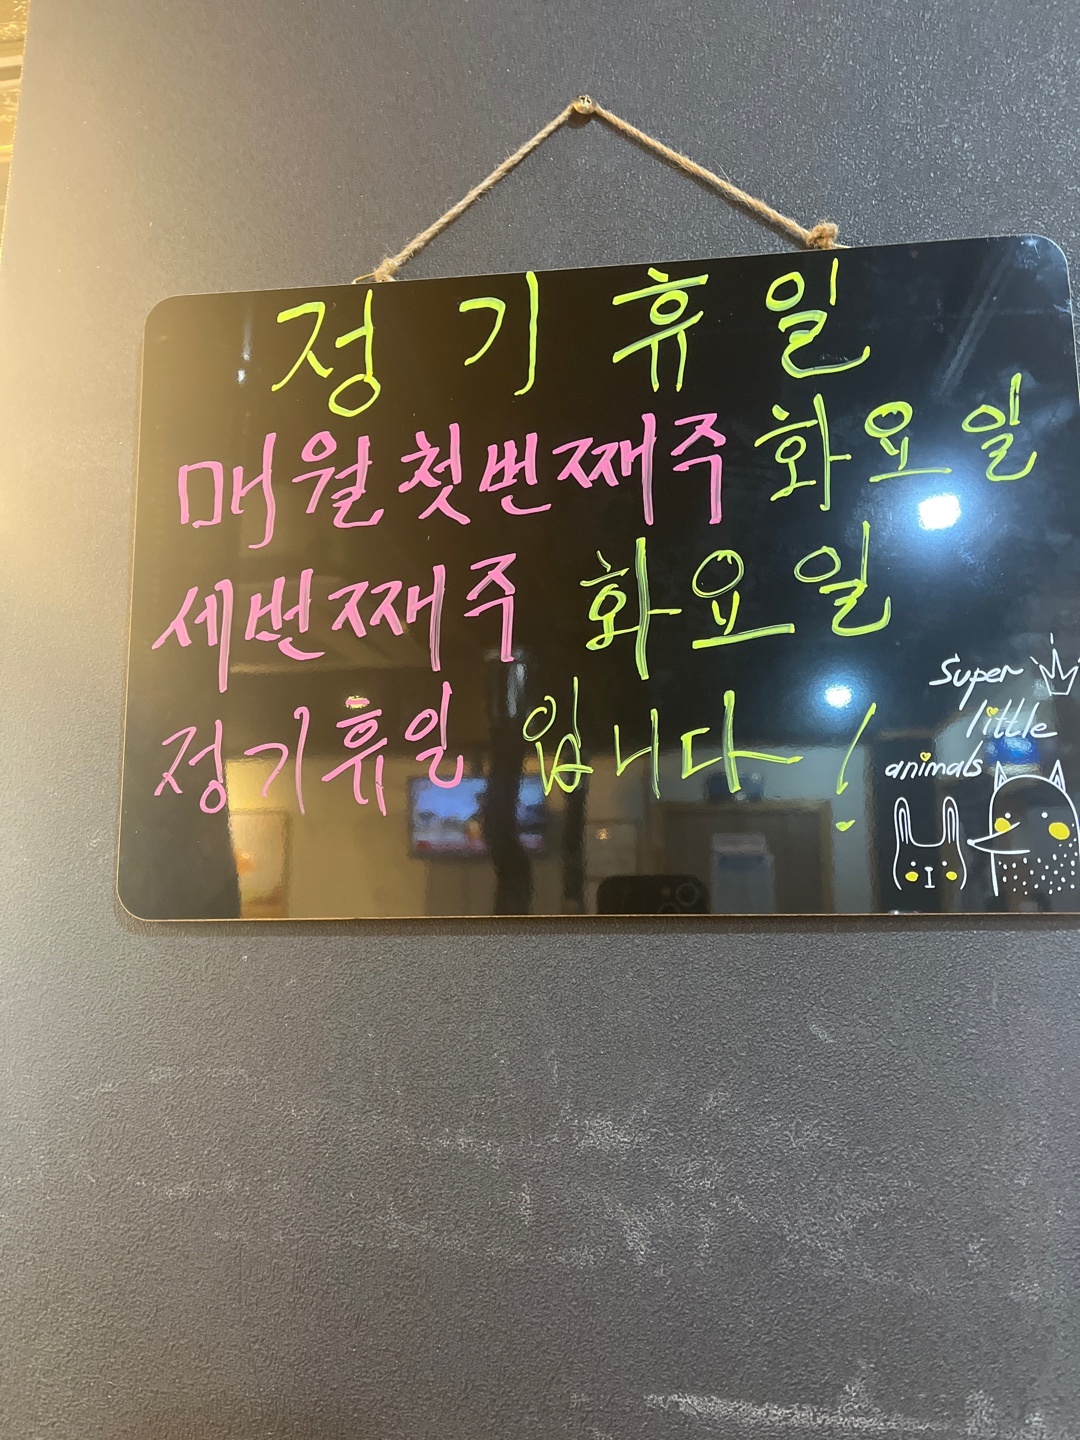 정기휴일
매월첫번째주 화요일
세번째주 화요일
정기휴일 입니다!
Super
little
animals